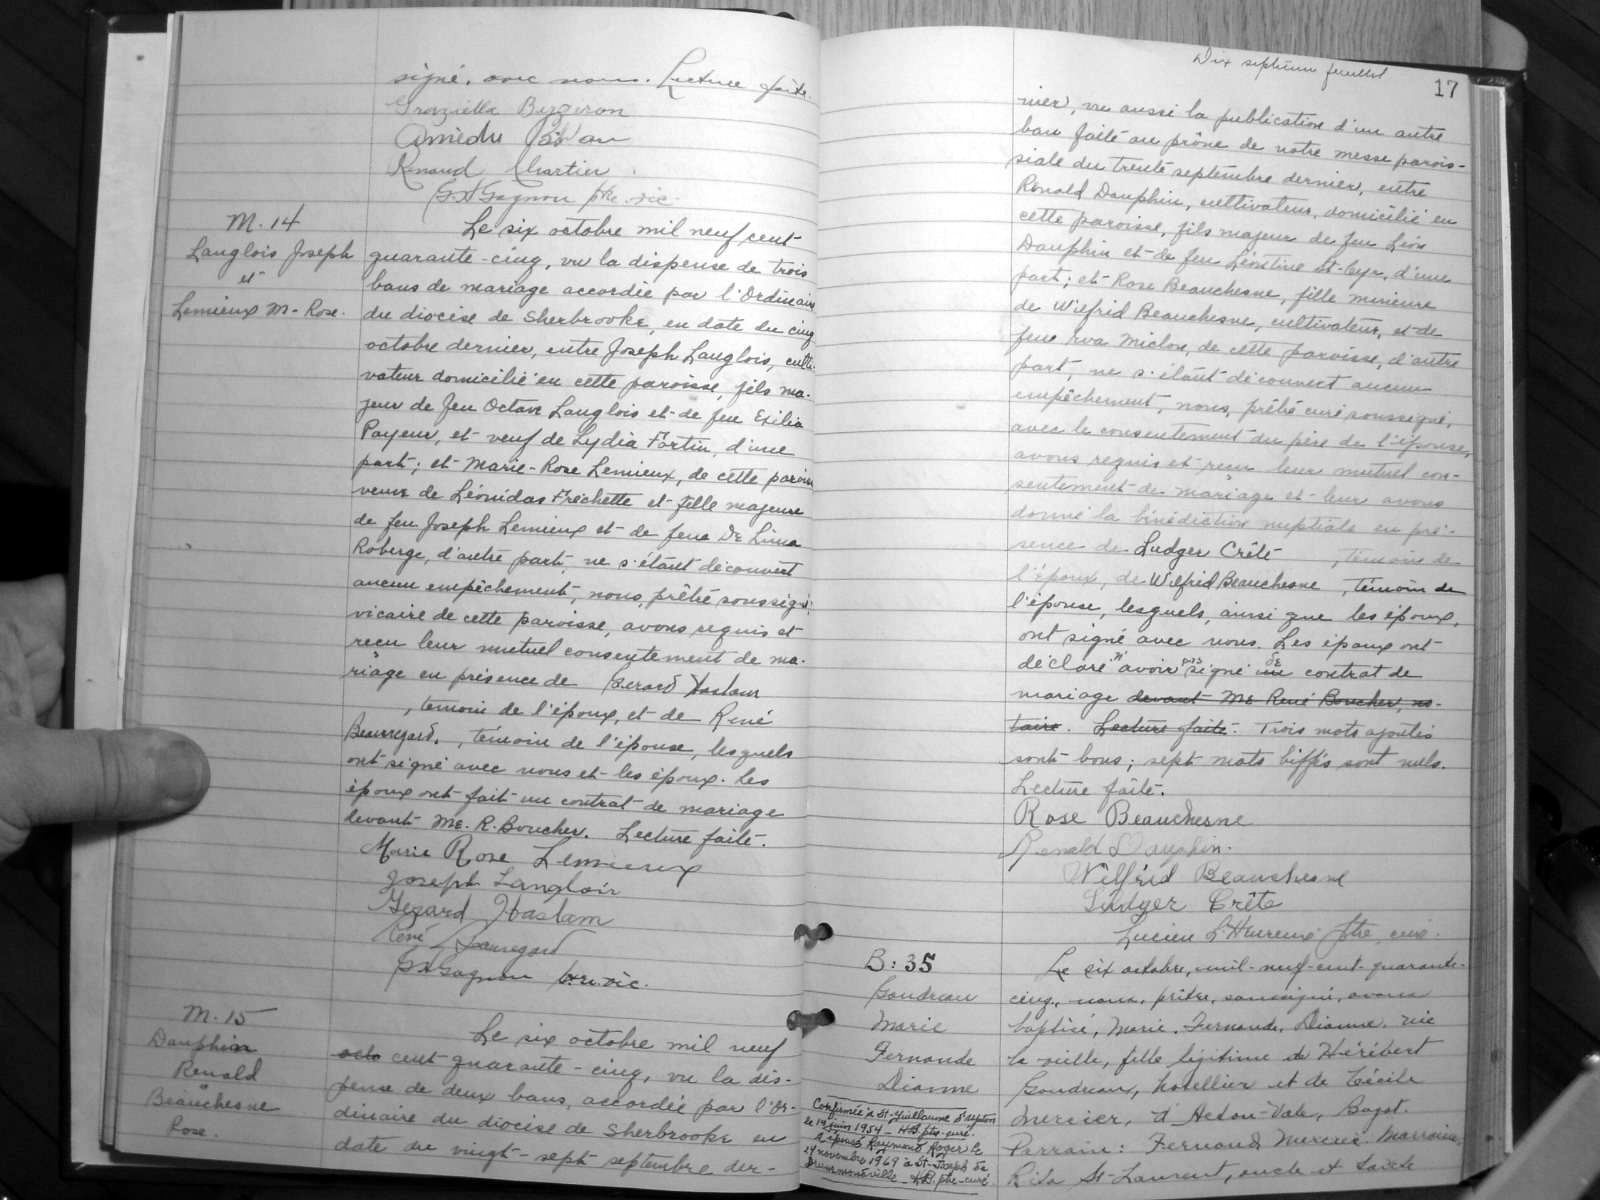 signé, avec nous. Lecture faite.
Graziella Bergeron
Amédée
Renaud Chartier
G. A. Gagnon ptre. vic.
M. 14
Langlois Joseph
et
Lemieux M-Rose.
Le six octobre mil neuf cent
quarante-cinq, vu la dispense de trois
bans de mariage accordée par l'Ordinaire
du diocèse de Sherbrooke, en date du cinq
octobre dernier, entre Joseph Langlois, culti-
vateur domicilié en cette paroisse, fils ma-
jeur de feu Octave Langlois et de feu Exilia
Payeur, et veuf de Lydia Fortin, d'une
part; et Marie-Rose Lemieux, de cette paroisse
veuve de Léonidas Fréchette et fille majeure
de feu Joseph Lemieux et de feue De Lima
Roberge, d'autre part, ne s'étant découvert
aucun empêchement, nous, prêtre soussigné,
vicaire de cette paroisse, avons requis et
reçu leur mutuel consentement de ma-
riage en présence de Gérard Haslam
, témoin de l'époux, et de René
Beauregard, témoin de l'épouse, lesquels
ont signé avec nous et les époux. Les
époux ont fait un contrat de mariage
devant Me. R. Boucher. Lecture faite.
Marie Rose Lemieux
Joseph Langlois
Gérard Haslam
René Beauregard
G. A. Gagnon ptre. vic.
M. 15
Dauphin
Renald
&
Beauchesne
Rose.
Le six octobre mil neuf
octo cent quarante-cinq, vu la dis-
pense de deux bans, accordée par l'Or-
dinaire du diocèse de Sherbrooke en
date du vingt-sept septembre der-
Dix septième feuillet
17
nier, vu aussi la publication d'un autre
ban faite au prône de notre messe parois-
siale du trente septembre dernier, entre
Renald Dauphin, cultivateur, domicilié en
cette paroisse, fils majeur de feu Léon
Dauphin et de feu Léontine St-Cyr, d'une
part; et Rose Beauchesne, fille mineure
de Wilfrid Beauchesne, cultivateur, et de
feue Eva Miclon, de cette paroisse, d'autre
part, ne s'étant découvert aucun
empêchement, nous, prêtre curé soussigné,
avec le consentement du père de l'épouse,
avons requis et reçu leur mutuel con-
sentement de mariage et leur avons
donné la bénédiction nuptiale en pré-
sence de Ludger Crête, témoin de
l'époux, de Wilfrid Beauchesne, témoin de
l'épouse, lesquels, ainsi que les époux,
ont signé avec nous. Les époux ont
déclaré n' avoir pas signé un de contrat de
mariage devant Me René Boucher, no-
taire. Lecture faite. Trois mots ajoutés
sont bons; sept mots biffés sont nuls.
Lecture faite.
Rose Beauchesne
Renald Dauphin.
Wilfrid Beauchesne
Ludger Crête
Lucien L'Heureux ptre, curé.
B: 35
Goudreau
Marie
Fernande
Dianne
Confirmée à St-Guillaume d'Upton
le 14 juin 1954 - H.B. ptre-curé.
A épousé Raymond Roger le
19 novembre 1969 à St-Joseph de
Drummondville - H.B. ptre-curé
Le six octobre, mil-neuf-cent-quarante-
cinq, nous, prêtre, soussigné, avons
baptisé, Marie, Fernande, Dianne, née
la veille, fille légitime de Héribert
Goudreau, hotellier et de Cécile
Mercier, d'Acton-Vale, Bagot.
Parrain: Fernand Mercier. Marraine,
Rita St-Laurent, oncle et tante